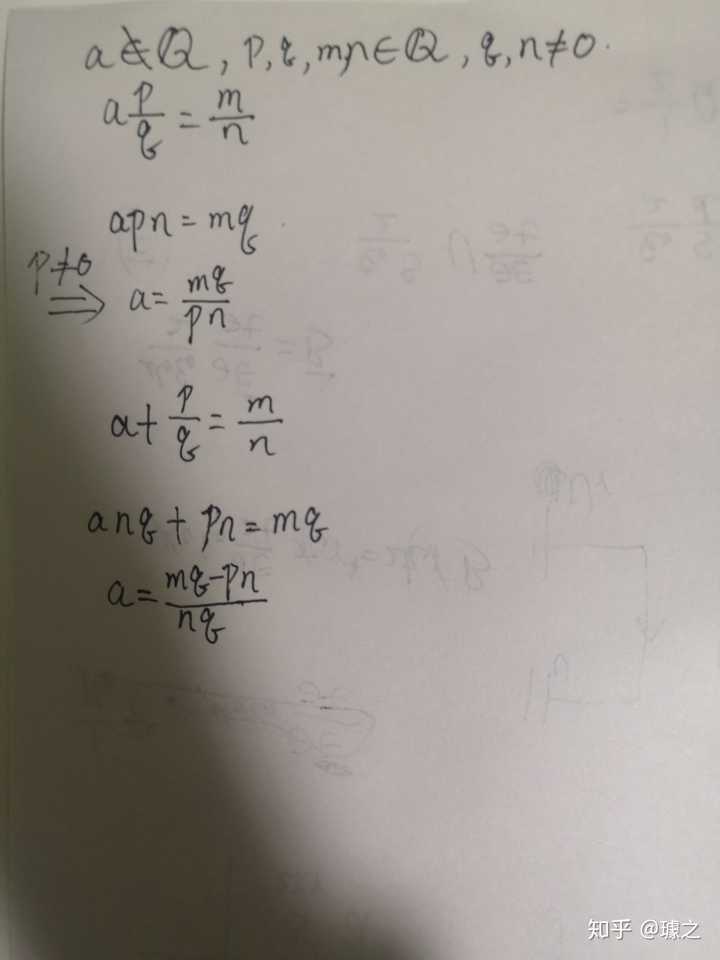 a∉Q, p,q,m,n∈Q, q,n≠0.
a p/q = m/n
apn = mq
p≠0 ⟹ a = mq/pn
a + p/q = m/n
anq + pn = mq
a = mq-pn/nq
知乎 @璩之